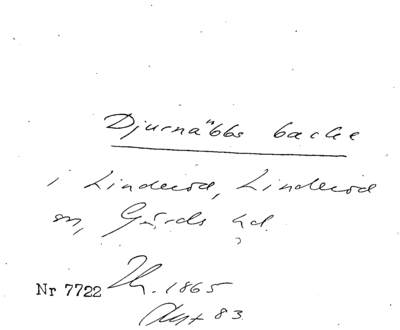 Djurnäbbs backe
i Linderöd, Linderöd
sn, Gärds hd.
Nr 7722 Th. 1865
83